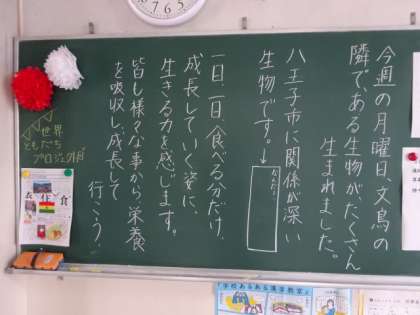 今週の月曜日、文鳥の
隣で、ある生物が、たくさん
生まれました。
八王子市に関係が深い
生物です。↓
なんだ?
一日、一日、食べる分だけ、
成長していく姿に、
生きる力を感じます。
皆も様々な事から栄養
を吸収し、成長して
行こう!
世界
ともだち
プロジェクト
衣 住 食
「学校あるある漢字教室」